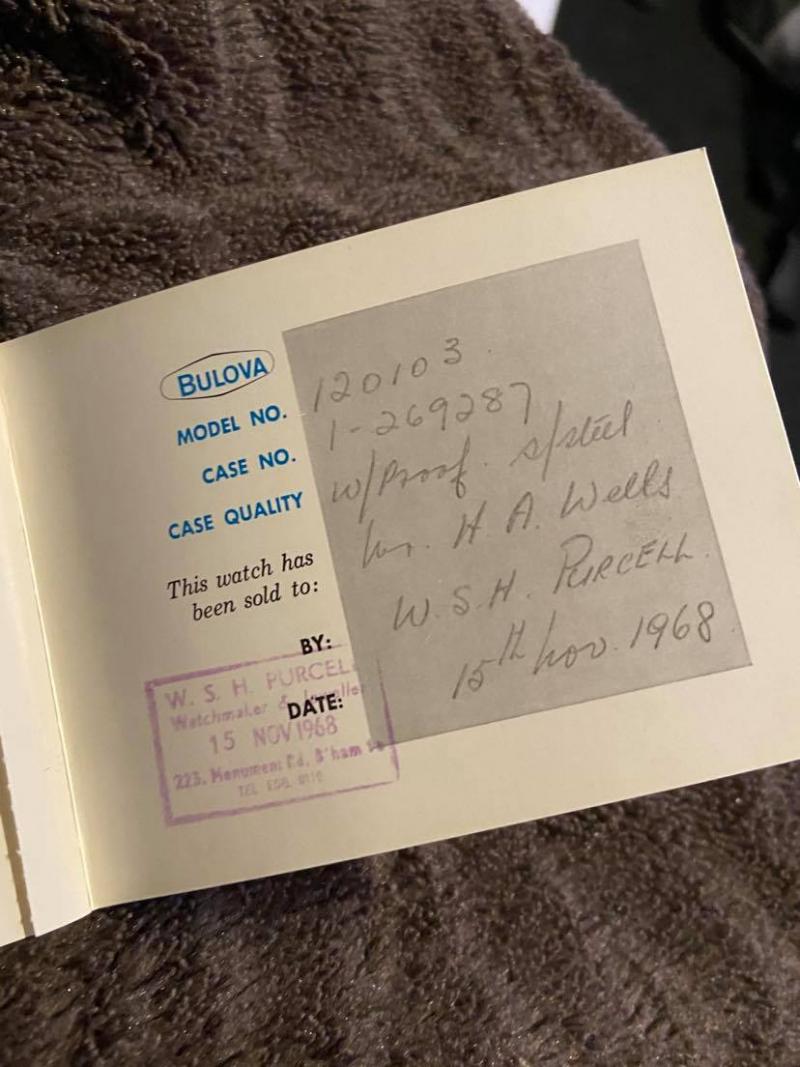 BULOVA
MODEL NO. 120103
CASE NO. 1-269287
CASE QUALITY W/Proof. S/Steel
This watch has
been sold to: H. A. Wells
BY: W. S. H. PURCELL.
DATE: 15th Nov. 1968
W. S. H. PURCELL
Watchmaker & Jeweller
15 NOV 1968
223, Monument Rd, B'ham
TEL